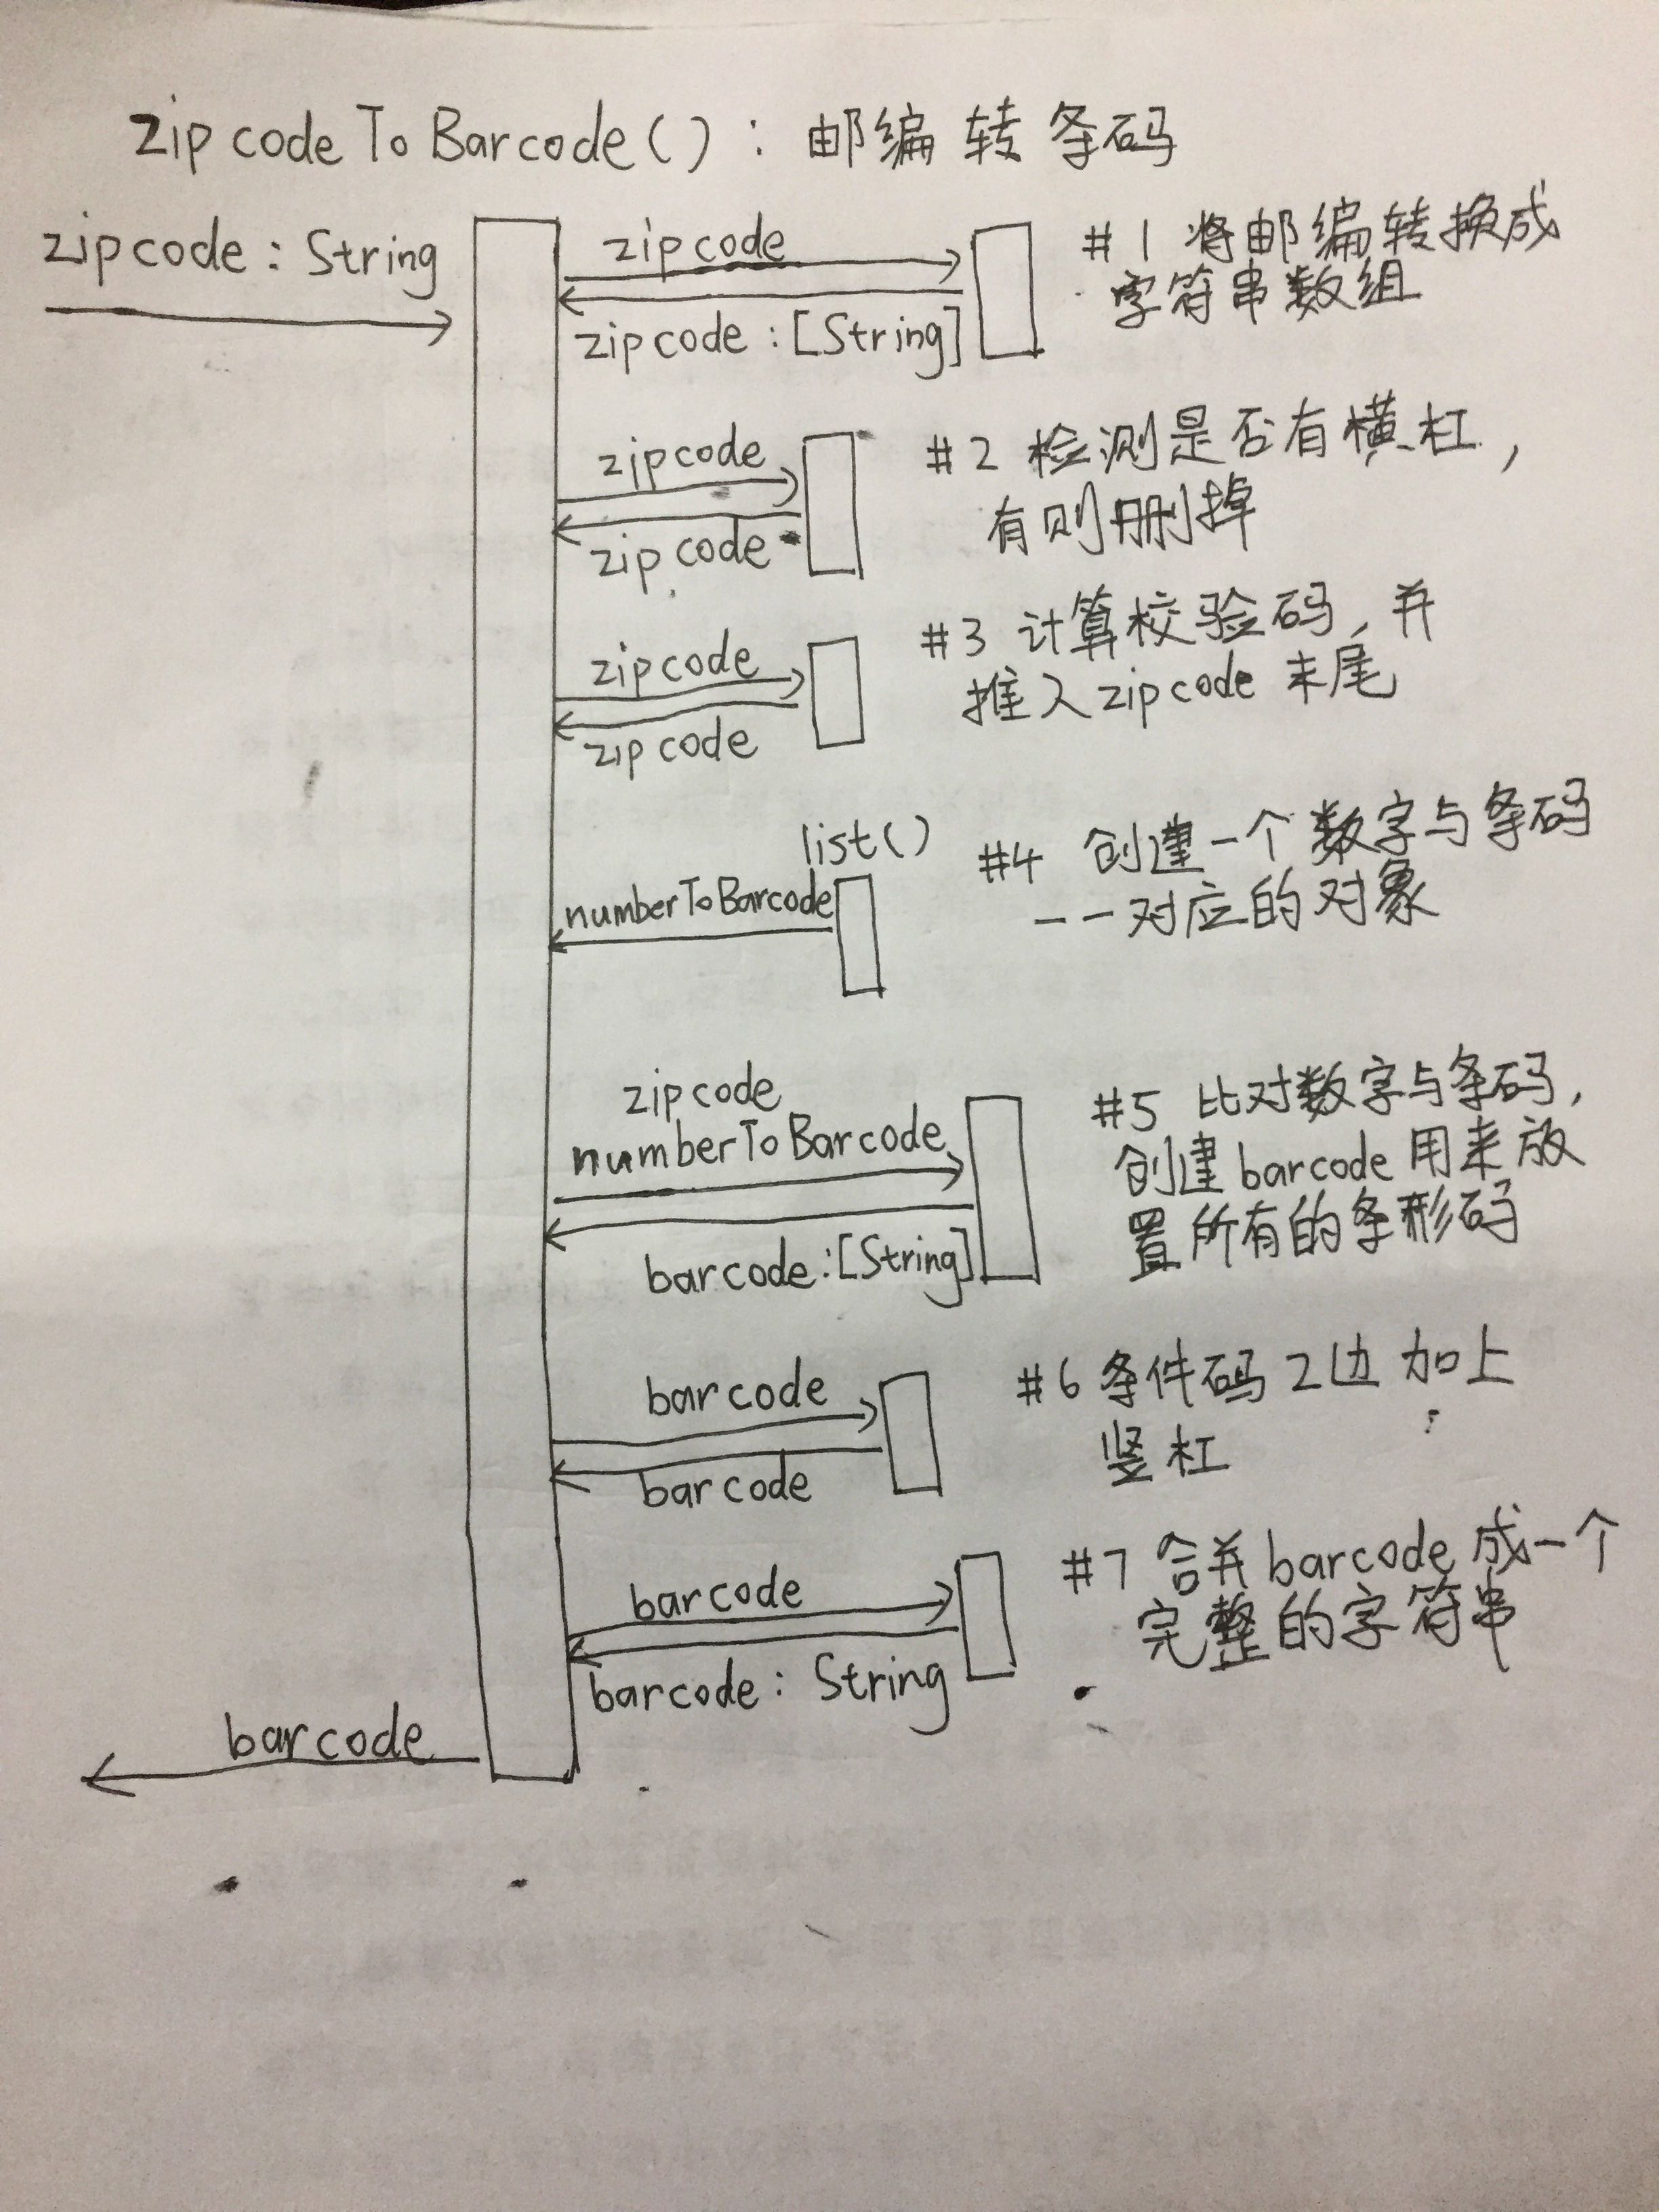 zipcodeToBarcode()：邮编转条码
zipcode：String
zipcode
zipcode：[String]
#1 将邮编转换成
字符串数组
zipcode
zipcode
#2 检测是否有横杠，
有则删掉
zipcode
zipcode
#3 计算校验码，并
推入zipcode末尾
list()
numberToBarcode
#4 创建一个数字与条码
一一对应的对象
zipcode
numberToBarcode
barcode：[String]
#5 比对数字与条码，
创建barcode用来放
置所有的条形码
barcode
barcode
#6 条件码2边加上
竖杠
barcode
barcode：String
#7 合并barcode成一个
完整的字符串
barcode